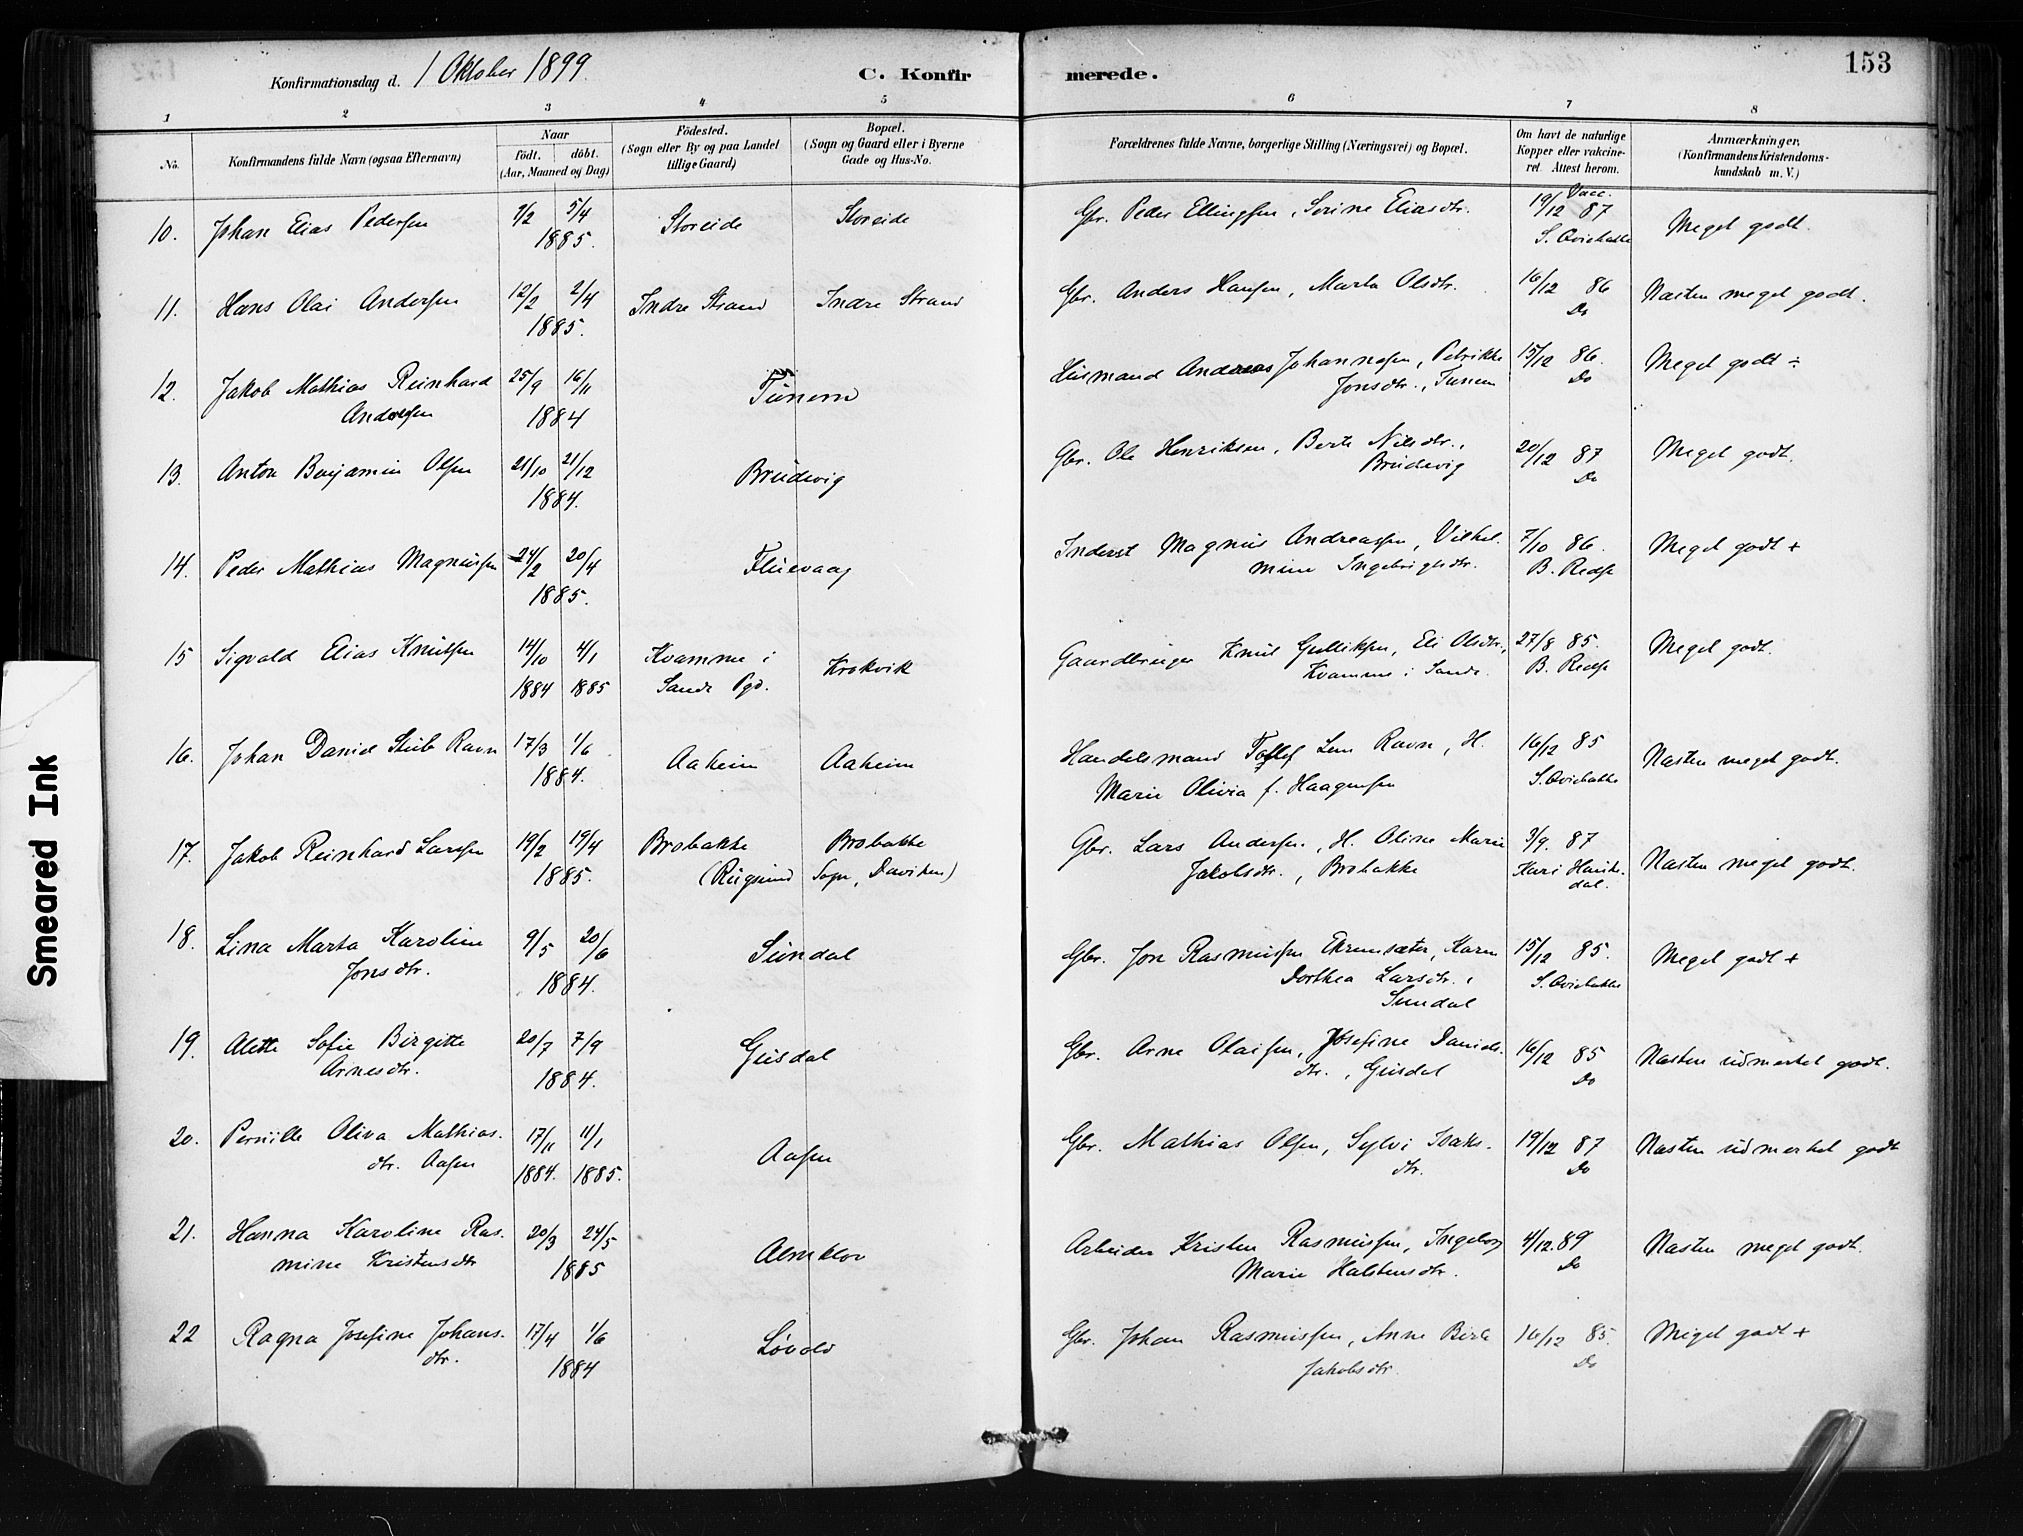 153
Konfirmationsdag d. 1 Oktober 1899.
C. Konfirmerede.
1 2 3 4 5 6 7 8
No.
Konfirmandens fulde Navn (ogsaa Efternavn)
Naar
födt. döbt.
(Aar, Maaned og Dag)
Födested.
(Sogn eller By og paa Landet
tillige Gaard)
Bopæl.
(Sogn og Gaard eller i Byerne
Gade og Hus-No.
Forældrenes fulde Navne, borgerlige Stilling (Næringsvei) og Bopæl.
Om havt de naturlige
Kopper eller vakcine-
ret. Attest herom.
Anmærkninger.
(Konfirmandens Kristendoms-
kundskab m. V.)
10. Johan Elias Pedersen 7/2 5/4 Storeide Storeide Gbr. Peder Ellingsen, Serine Eliasdtr. Vacc. 19/12 87 Meget godt.
1885. S. Qviebakke
11. Hans Olai Andersen 12/2 2/4 Indre Strand Indre Strand Gbr. Anders Hansen, Marta Olsdtr. 16/12 86 Næsten meget godt.
1885. Do
12. Jakob Mathias Reinhard 25/9 16/11 Tunem Husmand Andreas Johannesen, Petrikke 15/12 86. Meget godt ÷
Andresen 1884 Jonsdtr., Tunem Do
13. Anton Benjamin Olsen 21/10 21/12 Brudevig Gbr. Ole Henriksen, Berte Nilsdtr., 20/12 87 Meget godt.
1884. Brudevig Do
14. Peder Mathias Magnussen 24/2 20/4 Fluevaag Inderst Magnus Andreassen, Vilhel- 7/10 86. Meget godt +
1885. mine Ingebrigtsdtr. B. Redse
15 Sigvald Elias Knutsen 14/10 4/1 Kvamme i Krokvik Gaardbruger Knut Gulliksen, Eli Olsdtr., 27/8 85. Meget godt.
1884 1885 Sande Pgd. Kvamme i Sande. B. Redse
16. Johan Daniel Stub Ravn 17/3 1/6 Aaheim Aaheim Handelsmand Tollef Lem Ravn, H. 16/12 85 Næsten meget godt.
1884. Marie Olivia f. Haagensen S. Qviebakke
17. Jakob Reinhard Larsen 19/2 19/4 Brobakke Brobakke Gbr. Lars Andersen, H. Oline Marie 3/9. 87 Næsten meget godt.
1885. (Rugsund Sogn, Daviken) Jakobsdtr., Brobakke Kari
dal.
18. Lina Marta Karoline 9/5 20/6 Sundal Gbr. Jon Rasmussen Ekremsæter, Karen 15/12 85. Meget godt +
Jonsdtr. 1884. Dorthea Larsdtr., S. Qviebakke
Sundal
19. Alette Sofie Birgitte 20/7 7/9 Gusdal Gbr. Arne Olaisen, Josefine Daniels- 16/12 85 Næsten udmerket godt.
Arnesdtr. 1884. dtr., Gusdal Do
20. Pernille Oliva Mathias- 17/11 11/1 Aasen Gbr. Mathias Olsen, Sylvi Isaks- 19/12 87 Næsten udmerket godt
dtr. Aasen 1884. 1885. dtr. Do
21. Hanna Karoline Ras- 20/3 24/5 Almklov Arbeider Kristen Rasmussen, Ingeborg 4/12. 89 Næsten meget godt.
mine Kristensdtr 1885 Marie Halstensdtr. Do
22 Ragna Josefine Johans- 17/4 1/6 Løvold Gbr. Johan Rasmussen, Anne Berte 16/12 85. Meget godt +
dtr. 1884 Jakobsdtr. Do
Smeared Ink